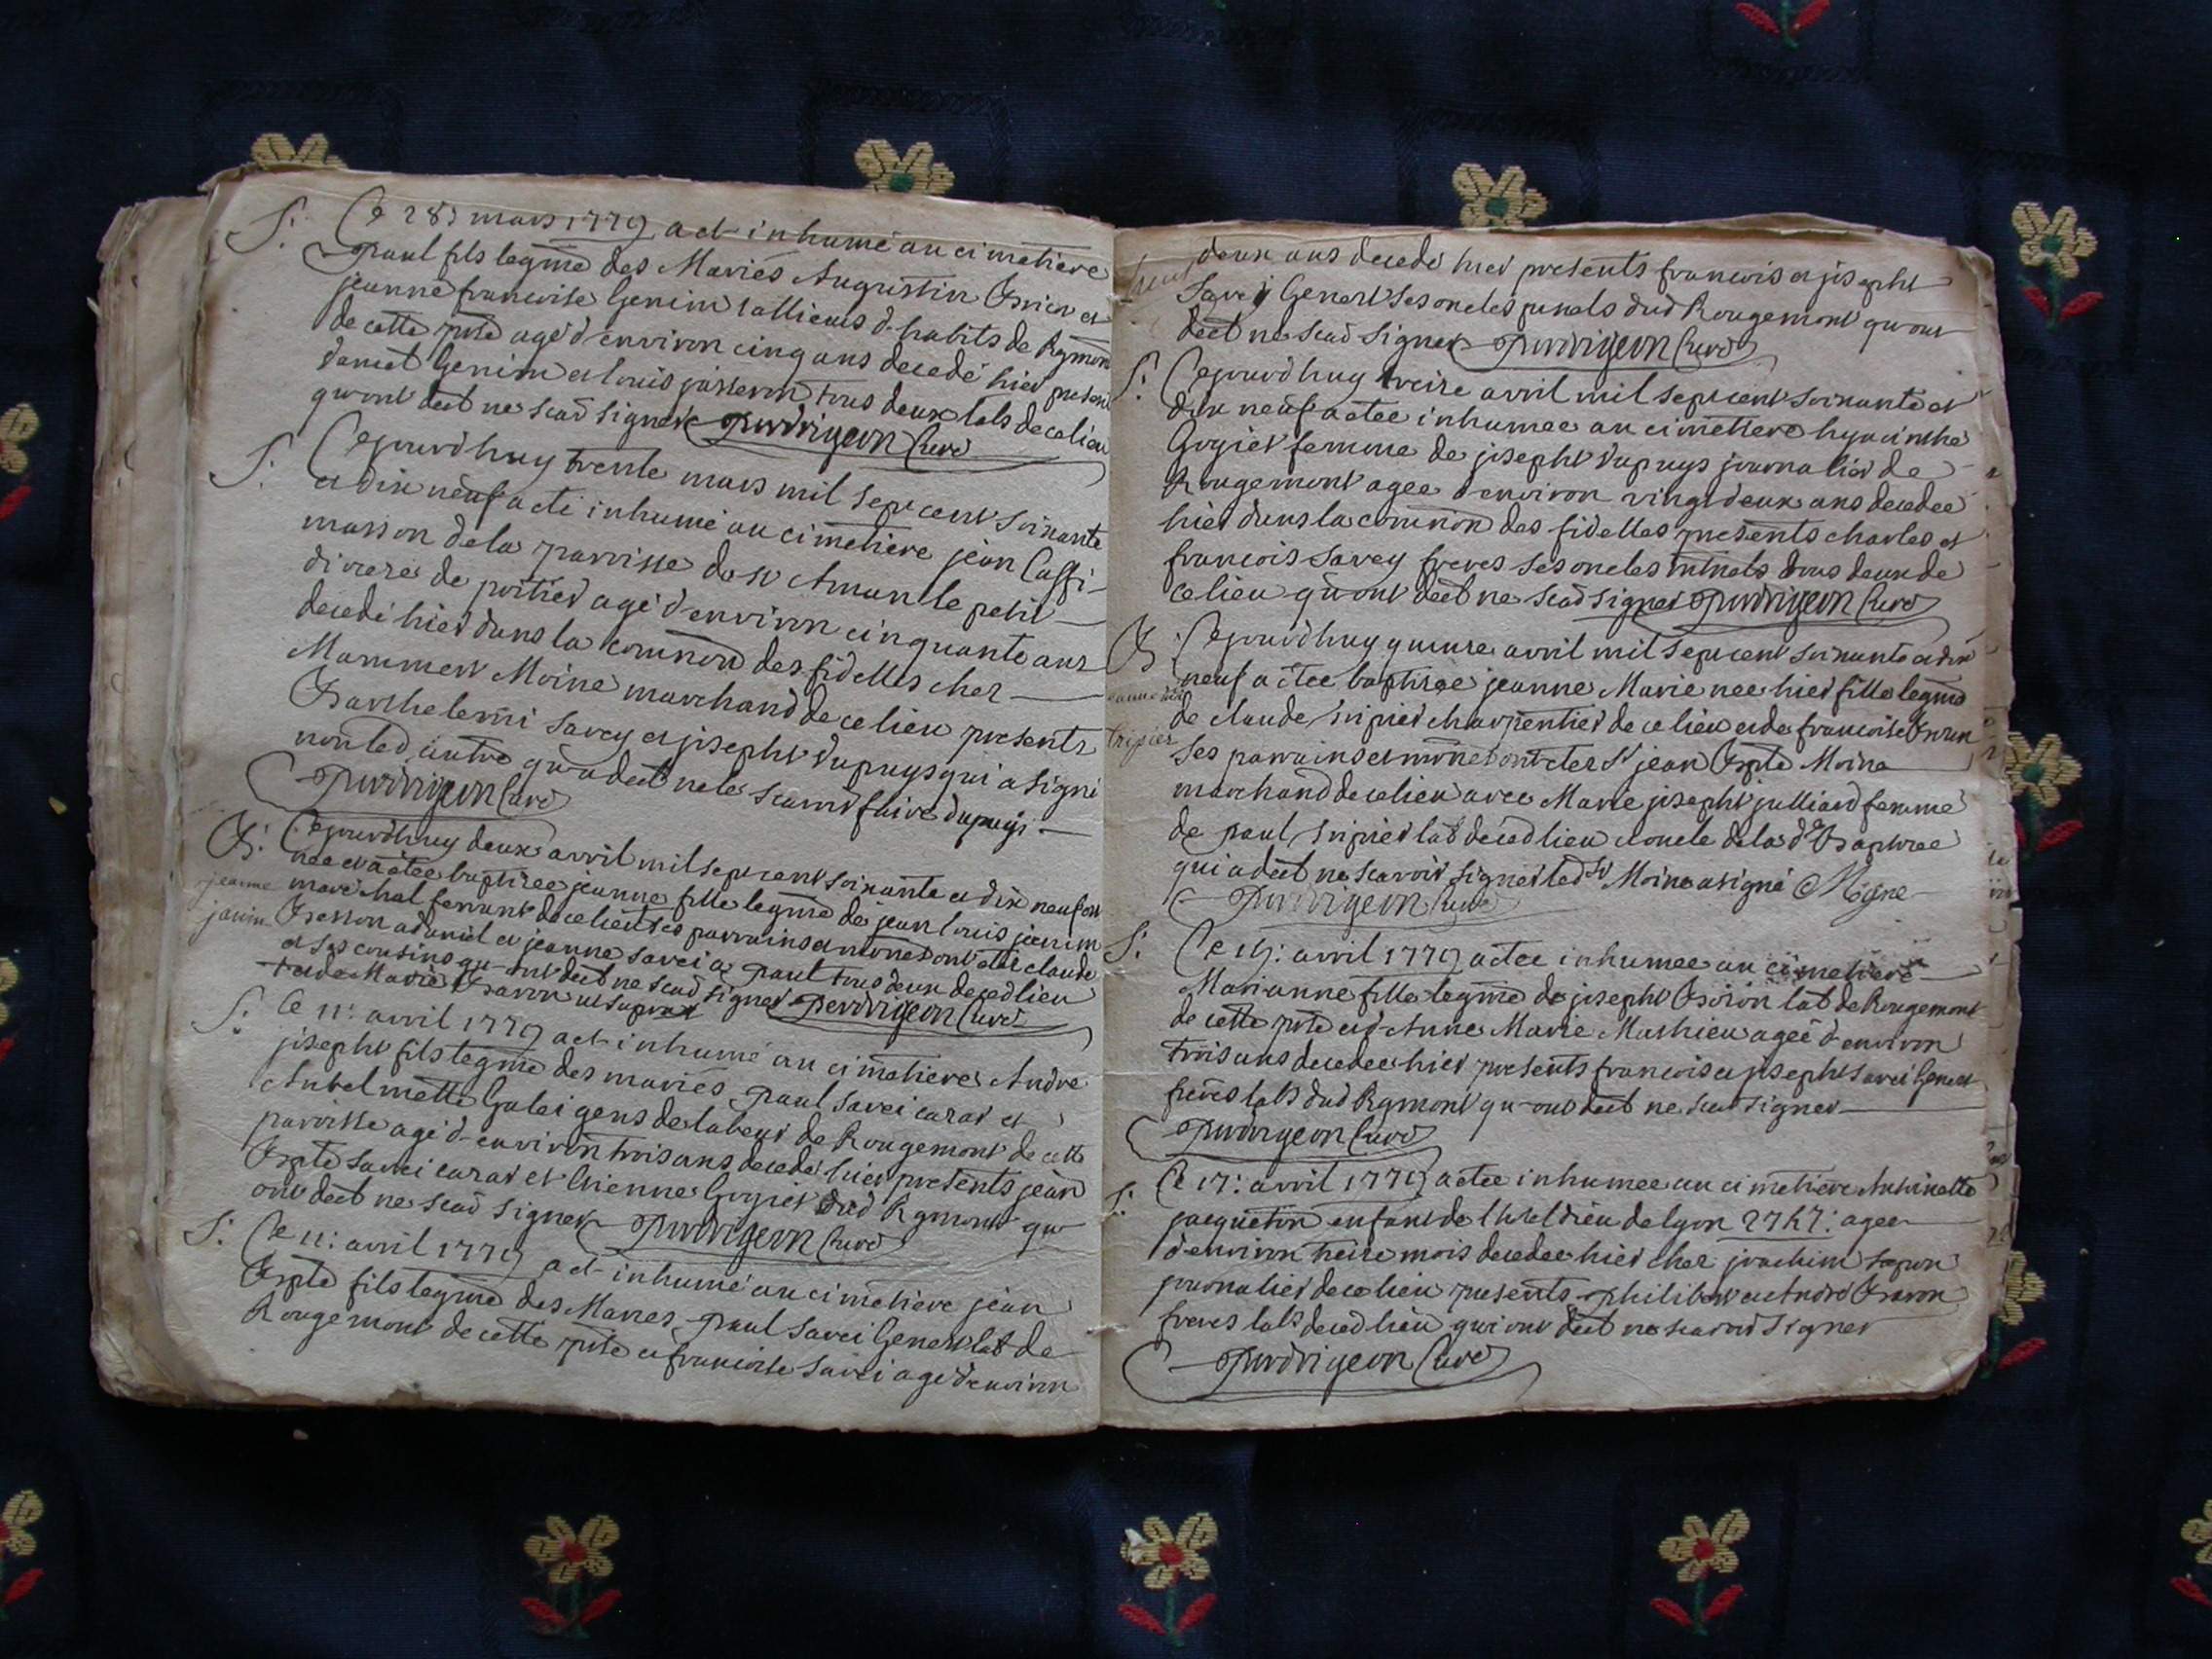 S: Ce 28: mars 1779 a et inhumé au cimetiere
paul fils legme des Mariés Augustin et
jeanne francoise Genim d habits de Rgmon
de cette psse agé d environ cinq ans decedé hier presents
Genim et louis tous deux labs de ce lieu
qu ont deet ne scad signer perdrigeon Curé
S: Cejourdhuy trente mars mil sept cent soixante
et dix neuf a eté inhumé au cimetiere jean
masson de la parroisse de st Aman le petit
diocese de poitier agé d environ cinquante ans
decedé hier dans la comnion des fidelles chez
Mammert Moine marchand de ce lieu presents
Barthelemi Savey et joseph dupuys qui a signé
non led autre qu a deet ne le scavoir faire dupuys
perdrigeon Curé
B: Cejourdhuy deux avril mil sept cent soixante et dix neuf est
nee et a etee baptisee jeanne fille legme de jean louis janim
jeanne
janim
marechal ferrant de ce lieu ses parrains et mrne ont eté claude
Besson a daniel et jeanne savei a paul tous deux de ced lieu
et ses cousins qu ont deet ne scad signer perdrigeon Curé
et de Marie Baron ut supra
S: Ce 11: avril 1779 a et inhumé au cimetiere André
joseph fils legme des mariés paul savei carat et
Antelmette Galei gens de labeur de Rougemont de cette
paroisse agé d environ trois ans decedé hier presents jean
Bpte savei carat et Etienne Gogier dud Rgmont qu
ont deet ne scad signer perdrigeon Curé
S: Ce 11: avril 1779 a et inhumé au cimetiere jean
Bpte fils legme des Maries paul savei Genert lab de
Rougemont de cette psse et francoise savei agé d environ
deux ans decedé hier presents francois et joseph
Savei Genert ses oncles dud Rougemont qu ont
deet ne scad signer perdrigeon Curé
S: Cejourdhuy treize avril mil sept cent soixante et
dix neuf a etee inhumee au cimetiere hyacinthe
Gogier femme de joseph dupuys journalier de
Rougemont agee d environ vingt deux ans decedee
hier dans la comnion des fidelles presents charles et
francois savey freres ses oncles tous deux de
ce lieu qu ont deet ne scad signer perdrigeon Curé
B: Cejourdhuy quinze avril mil sept cent soixante et dix
neuf a etee baptisee jeanne Marie nee hier fille legme
tripier
de claude tripier charpentier de ce lieu et de francoise
ses parrains et mrne ont eter Sr jean Bpte Moine
marchand de ce lieu avec Marie joseph julliard femme
de paul tripier lab de ced lieu oncle de la de Baptisee
qui a deet ne scavoir signer led Sr Moine a signé Moyne
perdrigeon Curé
S: Ce avril 1779 a etee inhumee au cimetiere
Marianne fille legme de joseph lab de Rougemont
de cette psse et d Anne Marie Mathieu agee d environ
trois ans decedee hier presents francois et joseph savei Genert
freres labs dud Rgmont qu ont deet ne scad signer
perdrigeon Curé
S: Ce 17: avril 1779 a etee inhumee au cimetiere Anthinette
jaqueton enfant de l hotel dieu de lyon agee
d environ treize mois decedee hier chez joachim
journalier de ce lieu presents philibert et André Baron
freres labs de ced lieu qui ont deet ne scavoir signer
perdrigeon Curé